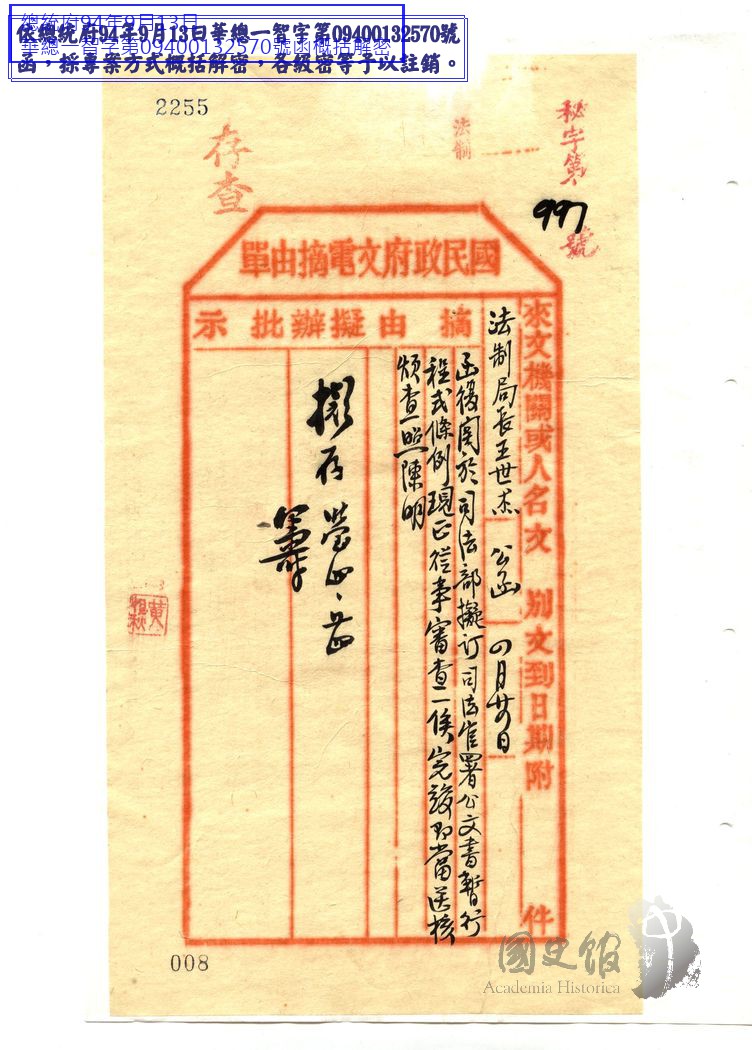 總統府94年9月13日
華總一智字第09400132570號函概括解密
依總統府94年9月13日華總一智字第09400132570號
函，採專案方式概括解密，各級密等予以註銷。
2255
存查
法制
秘字第
997
號
國民政府文電摘由單
來文機關或人名文別文到日期附件
法制局長王世杰
公函
四月廿四日
摘由擬辦批示
函復關於司法部擬訂司法官署公文書暫行
程式條例現正從事審查一俟完竣即當送核
煩查照陳明
擬存
008
國史館
Academia Historica